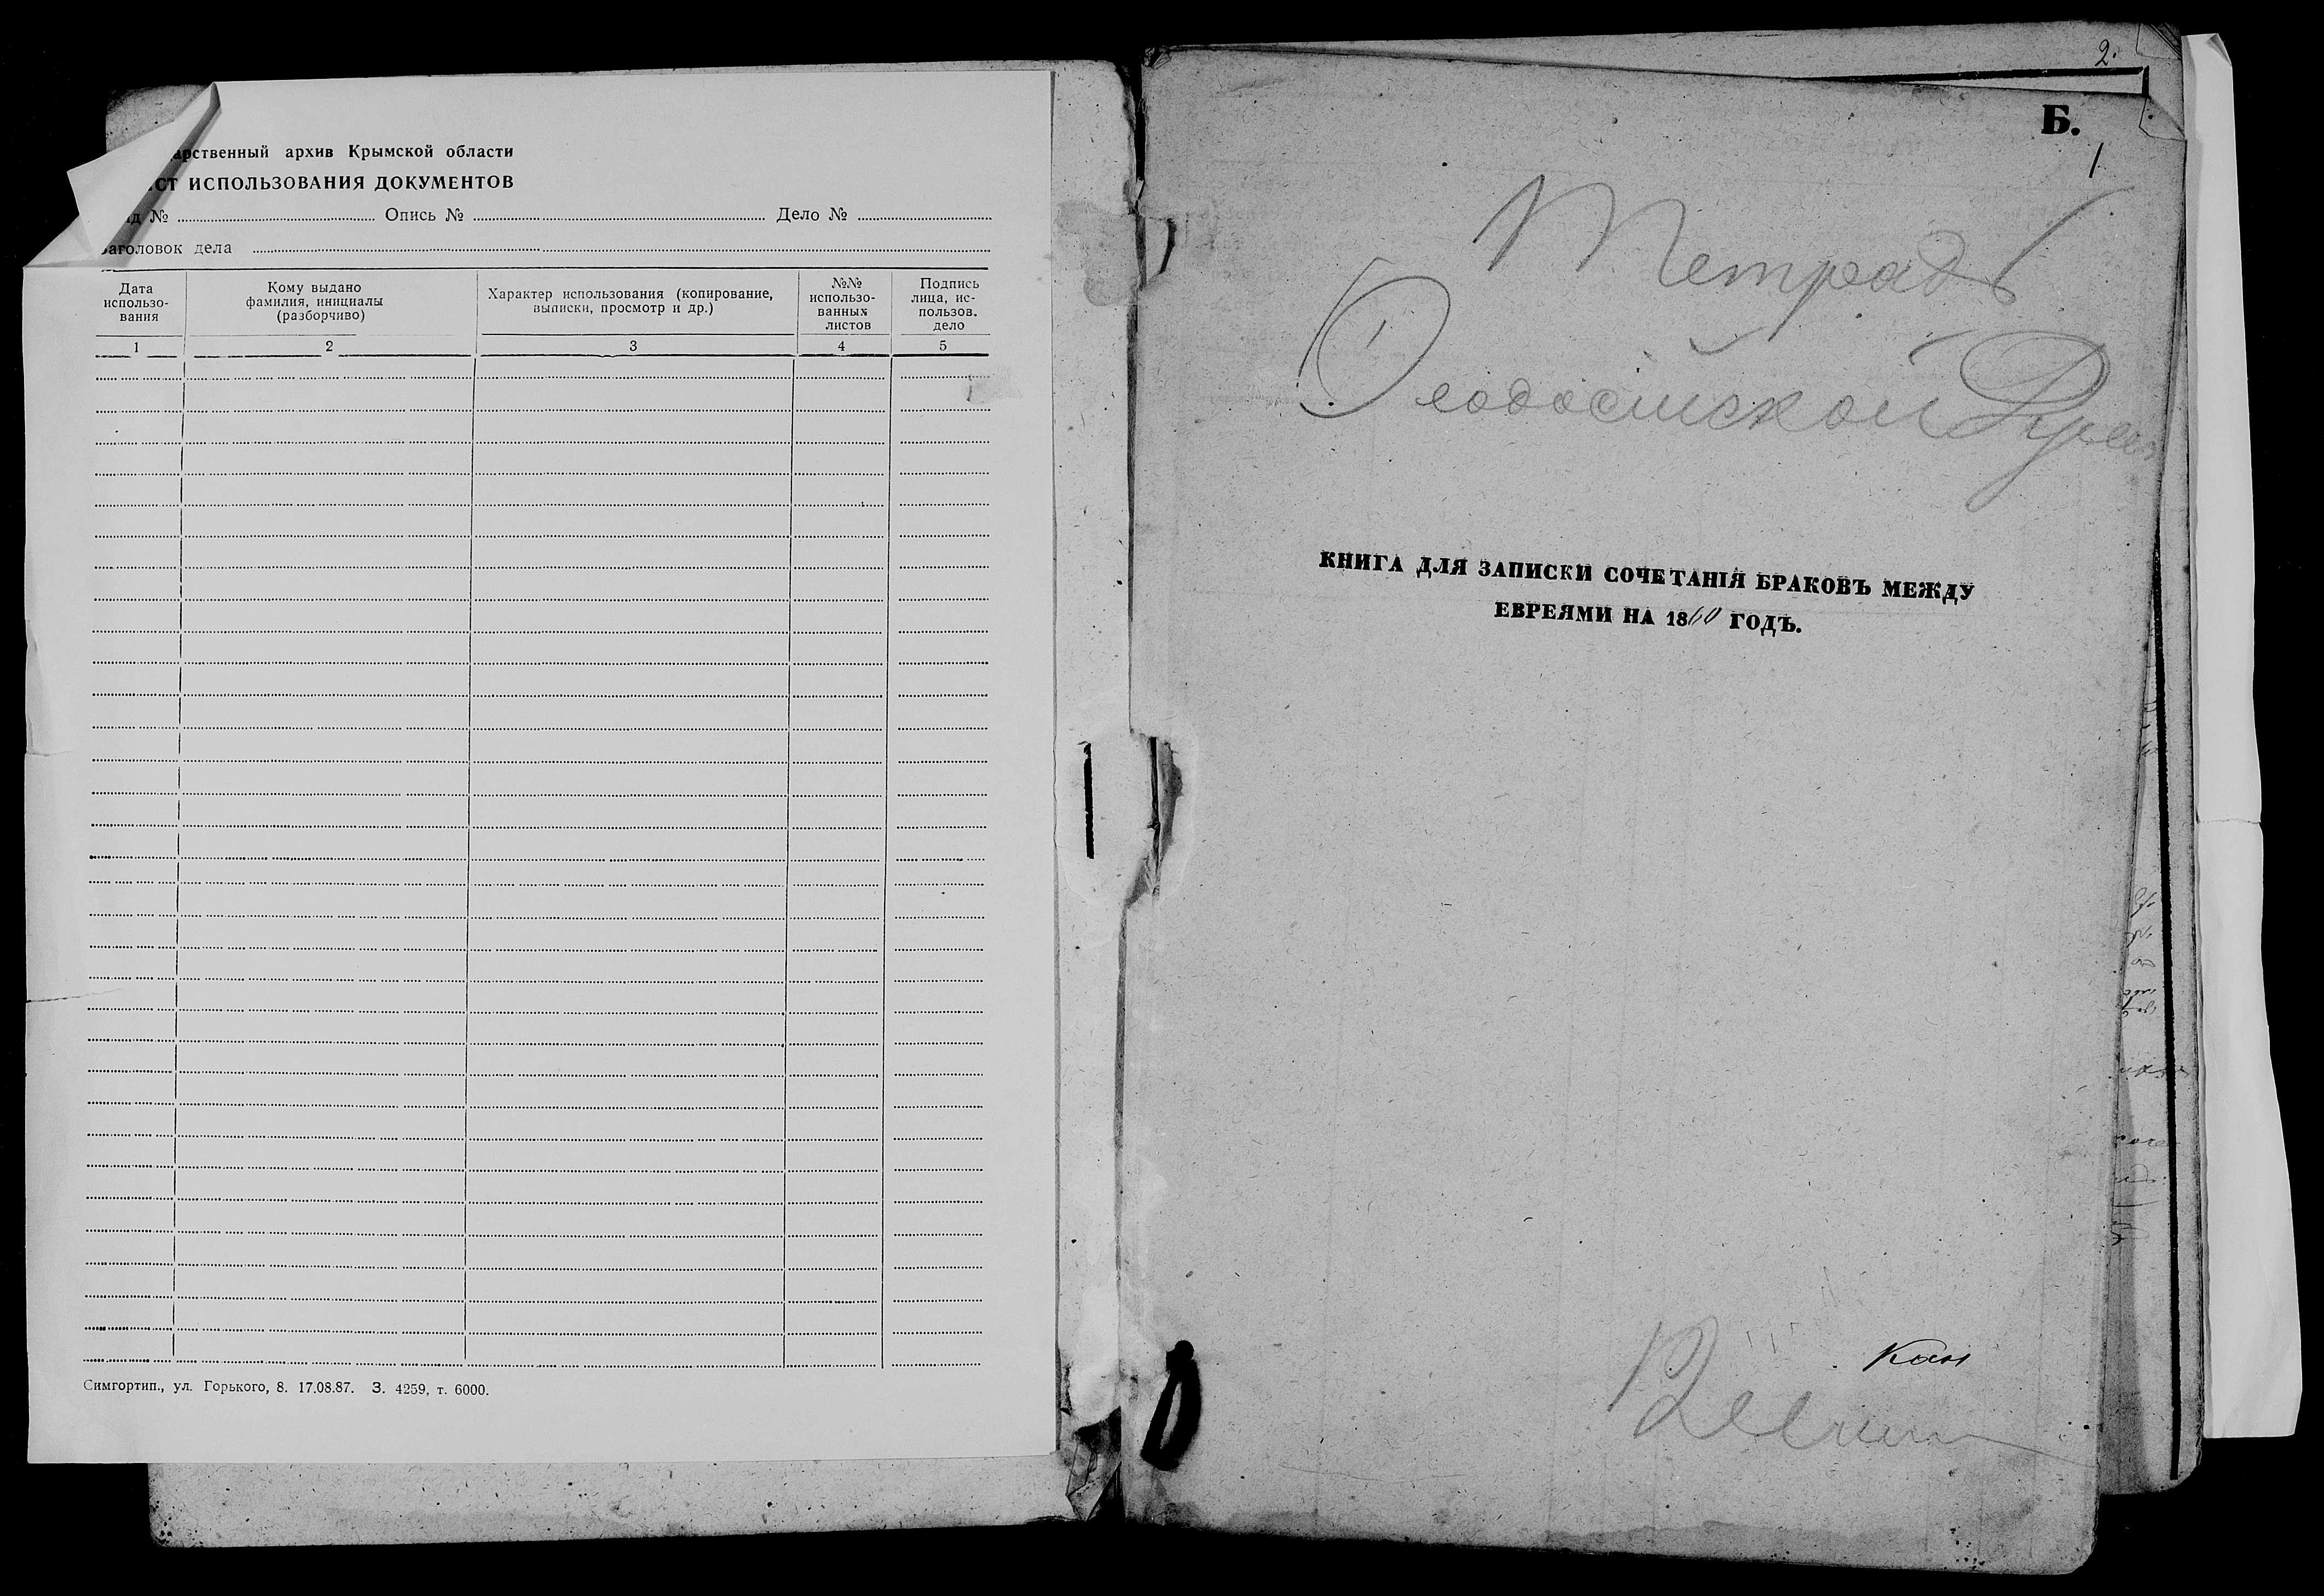 арственный архив Крымской области
СТ ИСПОЛЬЗОВАНИЯ ДОКУМЕНТОВ
д № Опись № Дело №
аголовок дела
Дата использо-вания
Кому выдано фамилия, инициалы (разборчиво)
Характер использования (копирование, выписки, просмотр и др.)
№№ использо-ванных листов
Подпись лица, ис-пользов. дело
1 2 3 4 5
Симгортип., ул. Горького, 8. 17.08.87. З. 4259, т. 6000.
2.
Б.
1
Тетрадь
Феодосийской
КНИГА ДЛЯ ЗАПИСКИ СОЧЕТАНІЯ БРАКОВЪ МЕЖДУ
ЕВРЕЯМИ НА 1860 ГОДЪ.